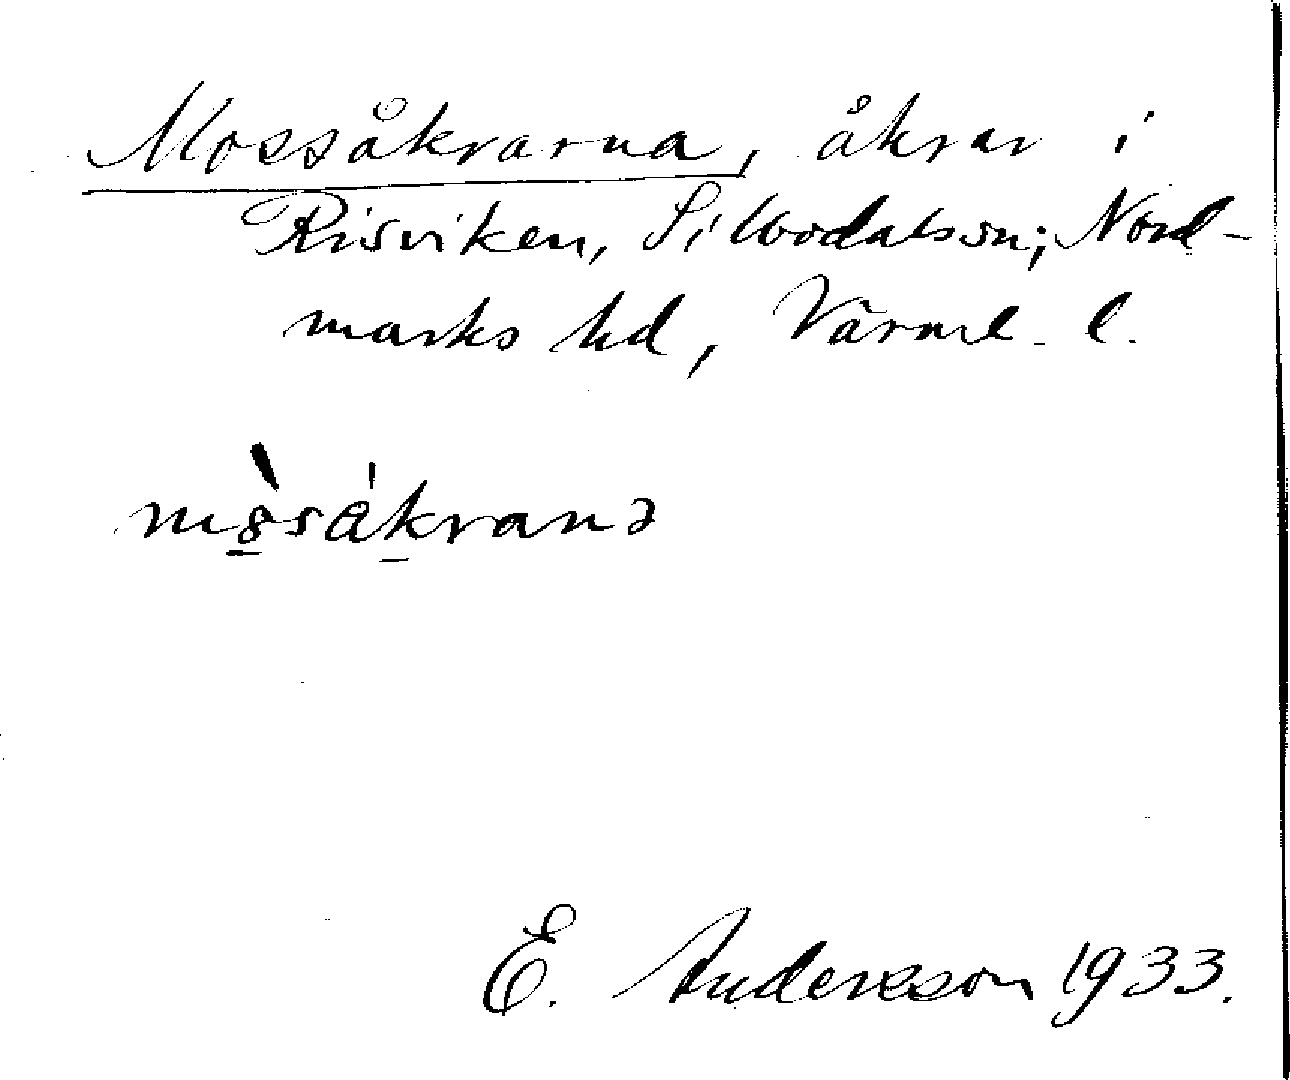 Mossåkrarna, åkrar i
Risviken, Silbodals sn; Nord-
marks hd, Värml. l.
mòsákranə
E. Andersson 1933.